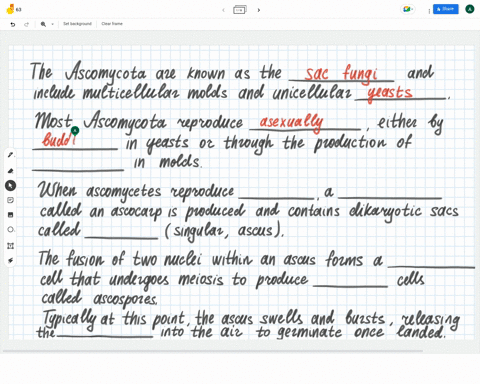 63
Share
A
Set background
Clear frame
The Ascomycota are known as the sac fungi and
include multicellular molds and unicellular yeasts.
Most Ascomycota reproduce asexually, either by
buddi in yeasts or through the production of
in molds.
When ascomycetes reproduce ________, a ________
called an ascocarp is produced and contains dikaryotic sacs
called ________ (singular, ascus).
The fusion of two nuclei within an ascus forms a ________
cell that undergoes meiosis to produce ________ cells
called ascospores.
Typically at this point, the ascus swells and bursts, releasing
the ________ into the air to germinate once landed.